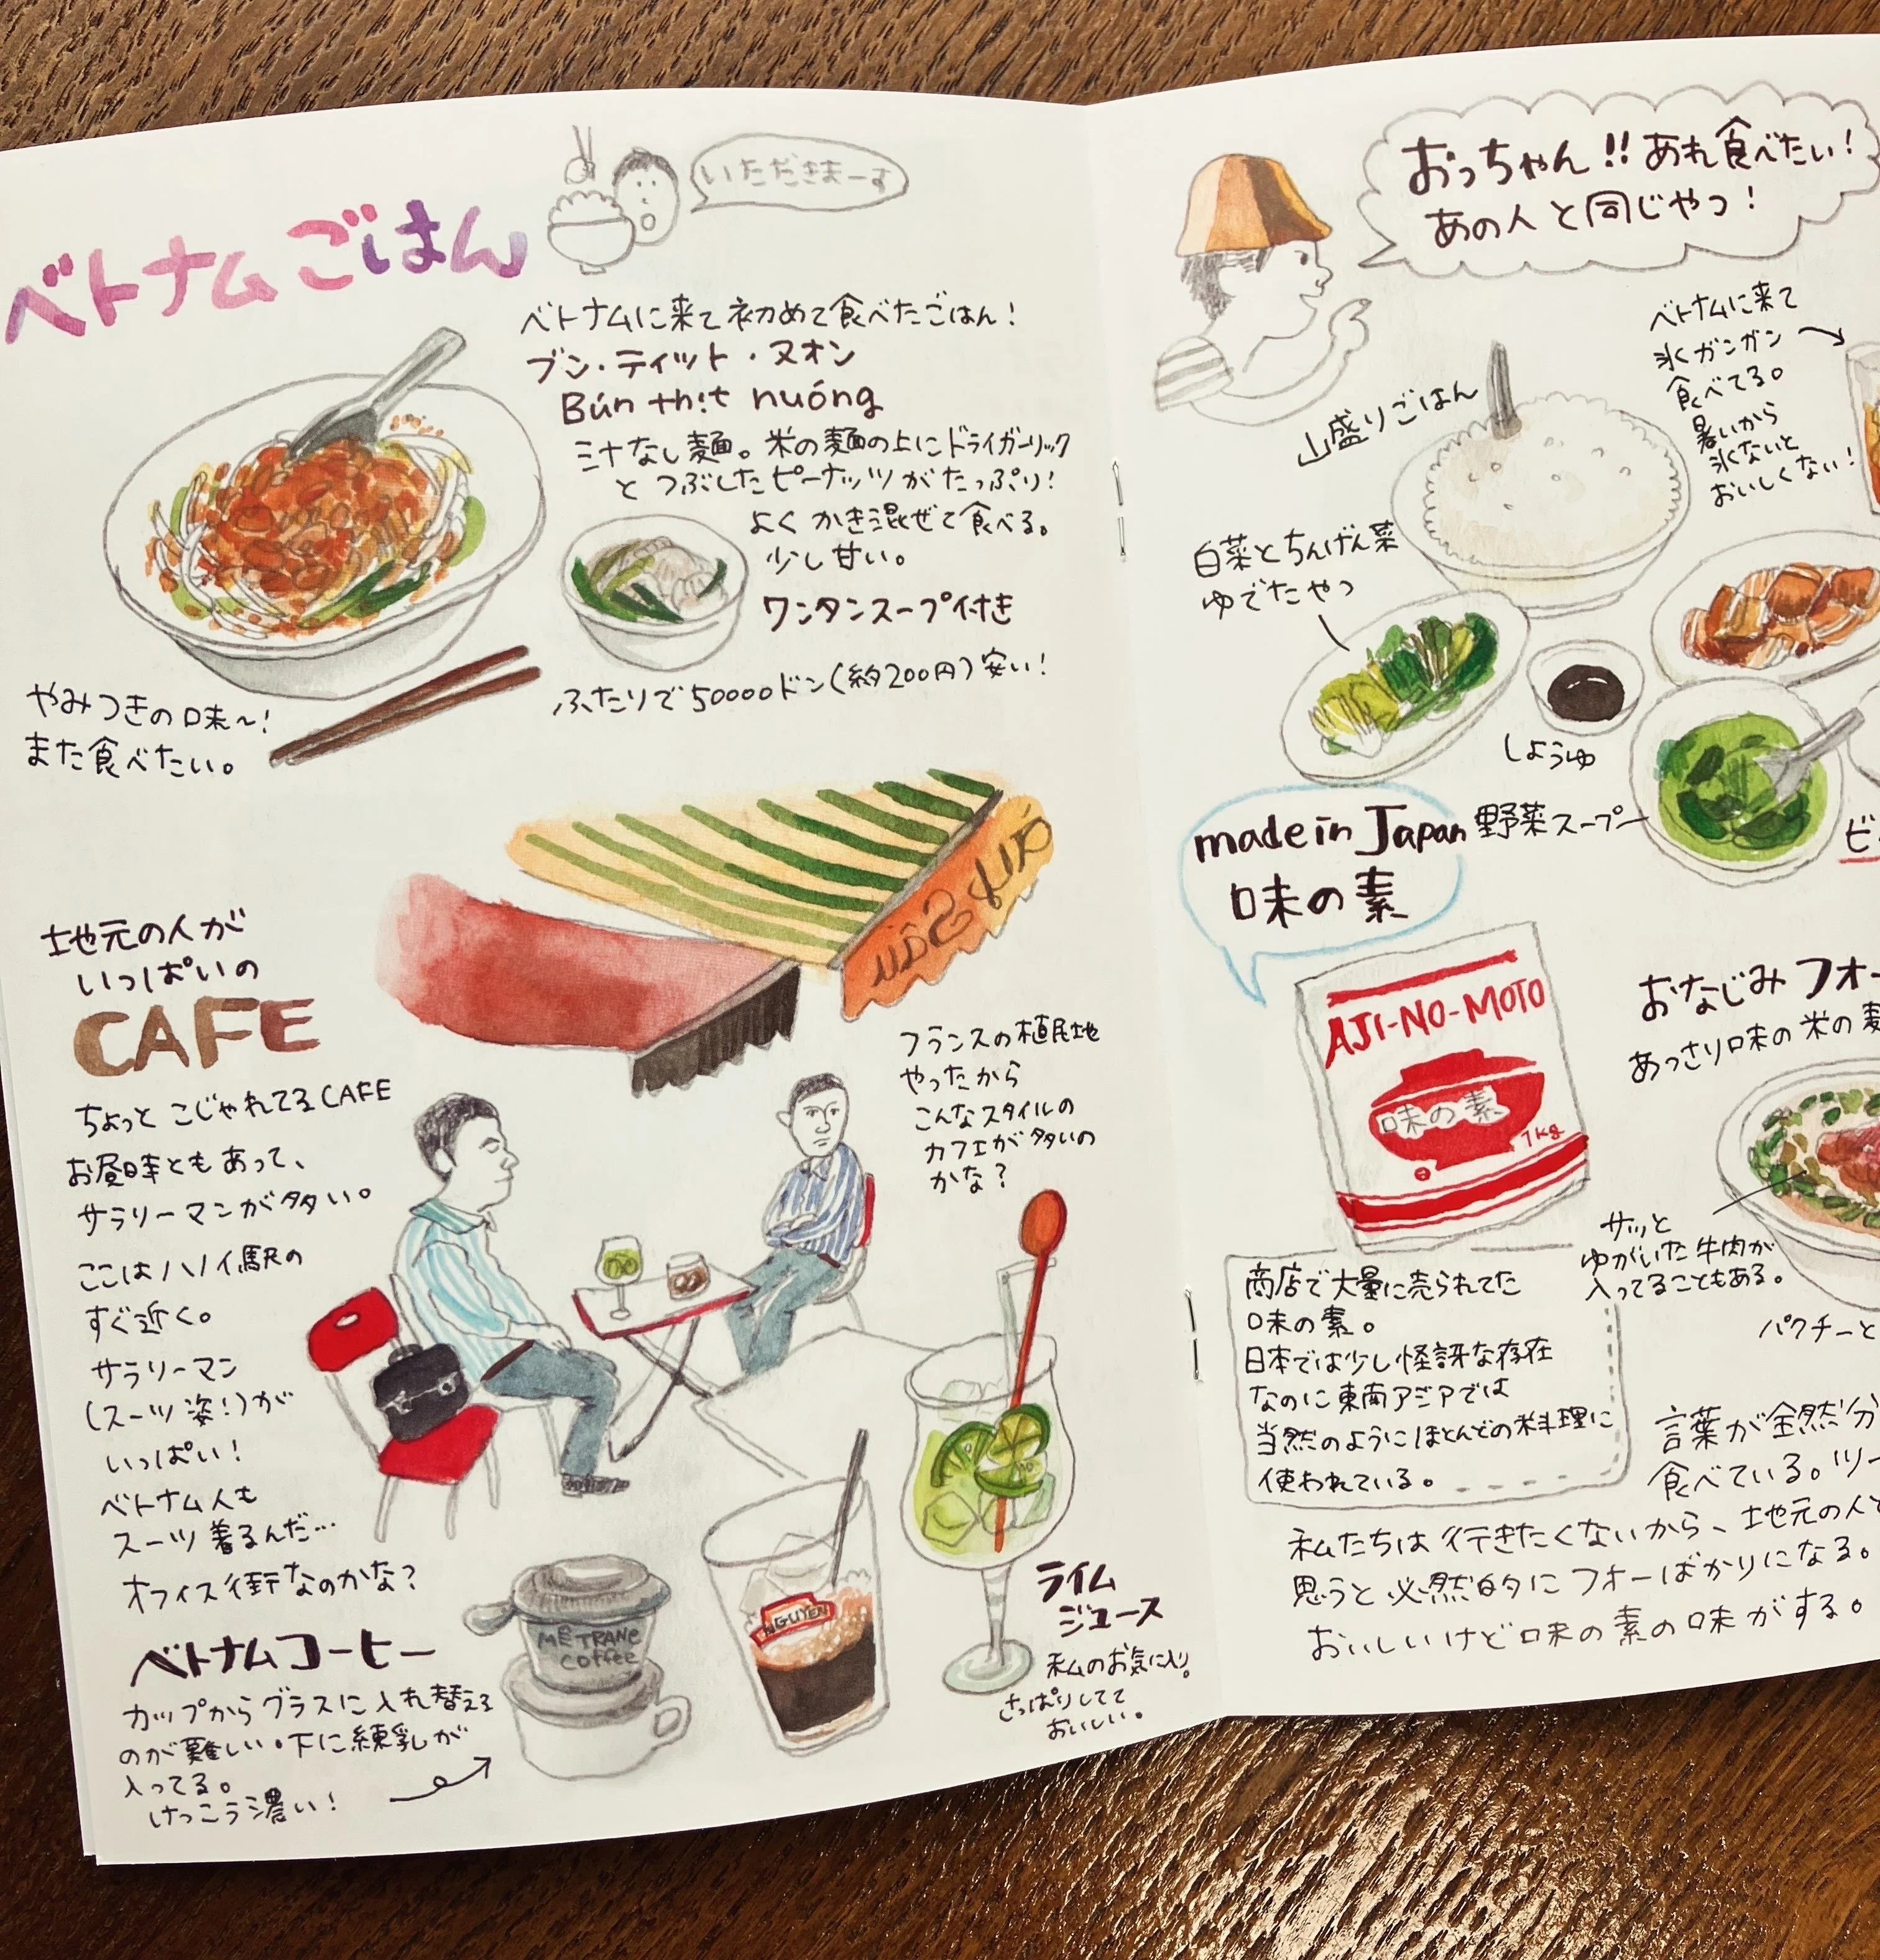 いただきまーす
ベトナムごはん
ベトナムに来て初めて食べたごはん！
ブン・ティット・ヌオン
Bún thịt nuóng
ミナなし麺。米の麺の上にドライガーリック
とつぶしたピーナッツがたっぷり！
よくかき混ぜて食べる。
少し甘い。
ワンタンスープ付き
ふたりで50000ドン（約200円）安い！
やみつきの味〜！
また食べたい。
地元の人が
いっぱいの
CAFE
ちょっとこじゃれてるCAFE
お昼時ともあって、
サラリーマンが多い。
ここはハノイ駅の
すぐ近く。
サラリーマン
（スーツ姿！）が
いっぱい！
ベトナム人も
スーツ着るんだ…
オフィス街なのかな？
フランスの植民地
やったから
こんなスタイルの
カフェが多いの
かな？
ベトナムコーヒー
カップからグラスに入れ替える
のが難しい。下に練乳が
入ってる。
けっこう濃い！
MÊ TRANG
coffee
NGUYEN
ライム
ジュース
私のお気に入り。
さっぱりしてて
おいしい。
おっちゃん!!あれ食べたい！
あの人と同じやつ！
ベトナムに来て
氷ガンガン
食べてる。
暑いから
氷ないと
おいしくない！
山盛りごはん
白菜とちんげん菜
ゆでたやつ
しょうゆ
野菜スープ
made in Japan
味の素
AJI-NO-MOTO
味の素
1kg
商店で大量に売られてた
味の素。
日本では少し怪訝な存在
なのに東南アジアでは
当然のようにほとんどの料理に
使われている。
おなじみフォー
あっさり味の米の麺
サッと
ゆがいた牛肉が
入ってることもある。
パクチーと
言葉が全然分
食べている。ツー
私たちは行きたくないから、地元の人と
思うと必然的にフォーばかりになる。
おいしいけど味の素の味がする。